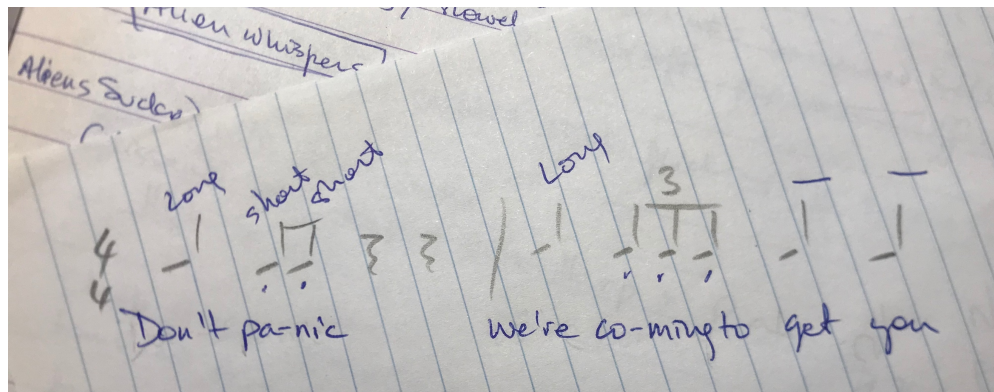 novel
Alien whispers
Aliens
Long short short Long 3
4
4
Don't pa-nic we're co-ming to get you